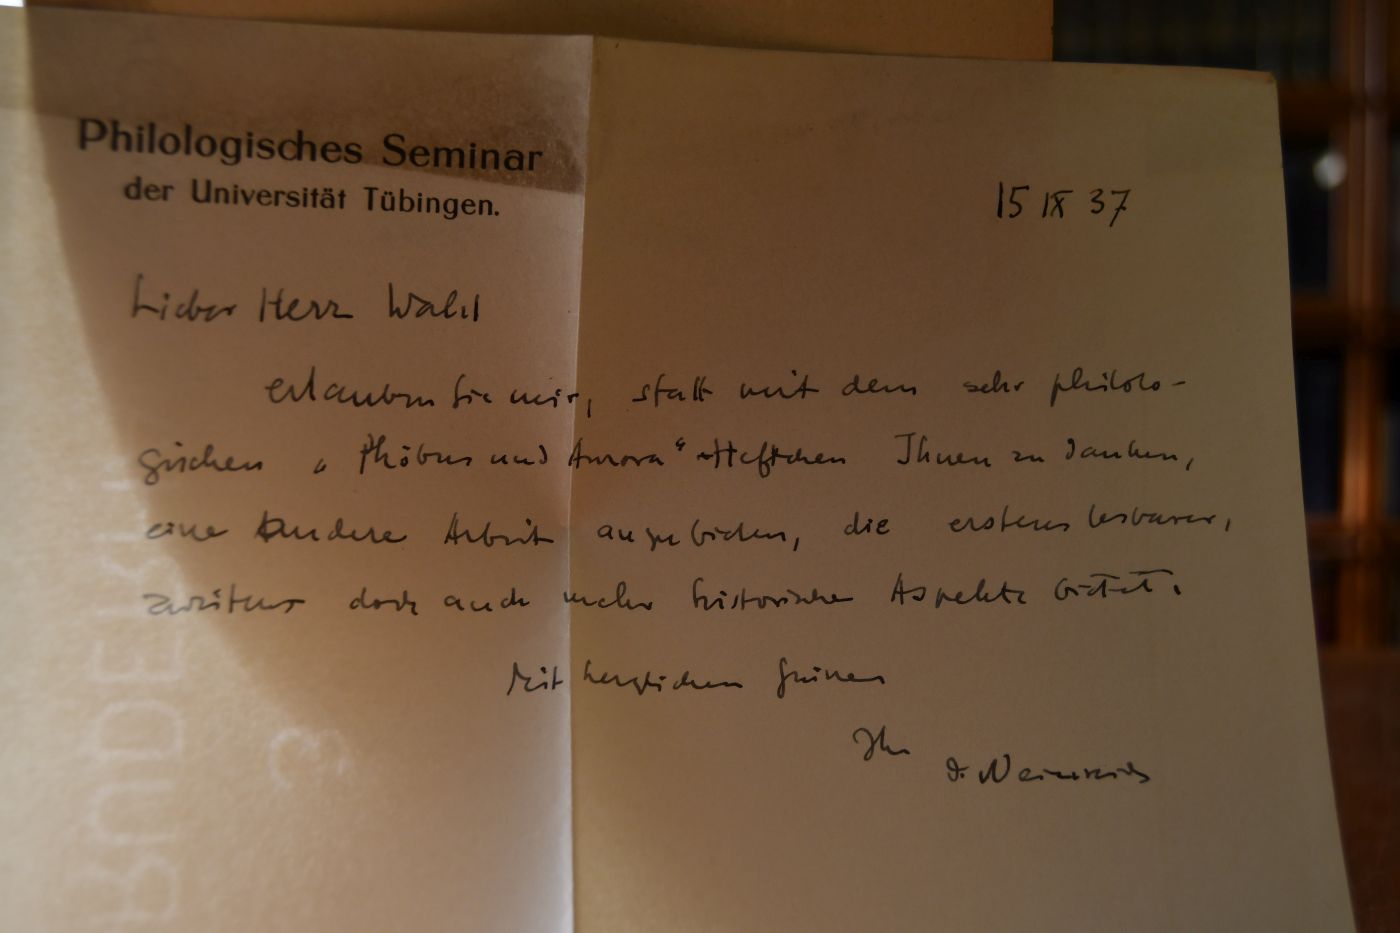 Philologisches Seminar
der Universität Tübingen.
15 IX 37
Lieber Herr Wahl
erlauben Sie mir, statt mit dem sehr philolo-
gischen „Phöbus und Aurora“-Heftchen Ihnen zu danken,
eine andere Arbeit anzubieten, die erstens lesbarer,
zweitens doch auch mehr historische Aspekte bietet.
Mit herzlichen Grüssen
Ihr
O. Weinreich
BÜDEKSIV
3